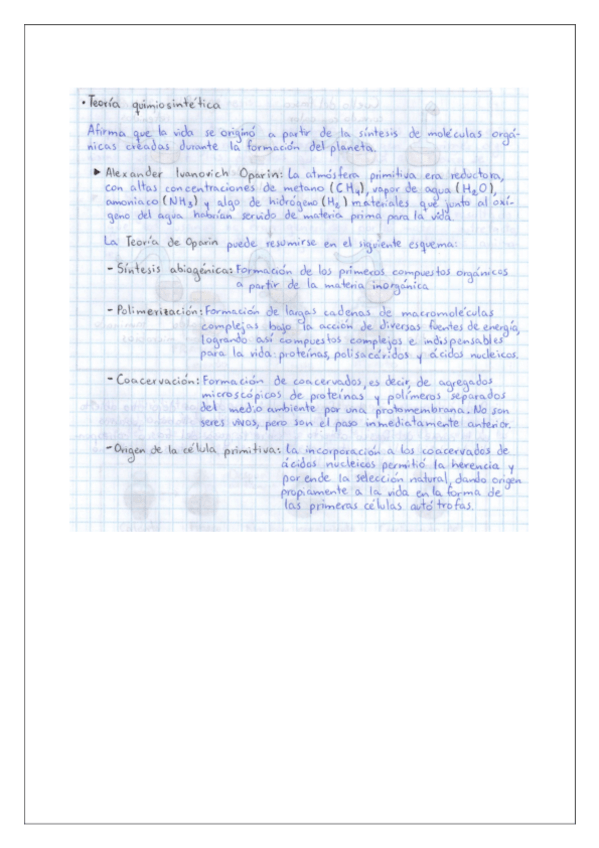 • Teoría quimiosintética
Afirma que la vida se originó a partir de la síntesis de moléculas orgá-
nicas creadas durante la formación del planeta.
► Alexander Ivanovich Oparin: La atmósfera primitiva era reductora,
con altas concentraciones de metano (CH₄), vapor de agua (H₂O),
amoniaco (NH₃) y algo de hidrógeno (H₂) materiales que junto al oxí-
geno del agua habrían servido de materia prima para la vida.
La Teoría de Oparin puede resumirse en el siguiente esquema:
- Síntesis abiogénica: Formación de los primeros compuestos orgánicos
a partir de la materia inorgánica
- Polimerización: Formación de largas cadenas de macromoléculas
complejas bajo la acción de diversas fuentes de energía,
logrando así compuestos complejos e indispensables
para la vida: proteínas, polisacáridos y ácidos nucleicos.
- Coacervación: Formación de coacervados, es decir, de agregados
microscópicos de proteínas y polímeros separados
del medio ambiente por una protomembrana. No son
seres vivos, pero son el paso inmediatamente anterior.
- Origen de la célula primitiva: La incorporación a los coacervados de
ácidos nucleicos permitió la herencia y
por ende la selección natural, dando origen
propiamente a la vida en la forma de
las primeras células autótrofas.